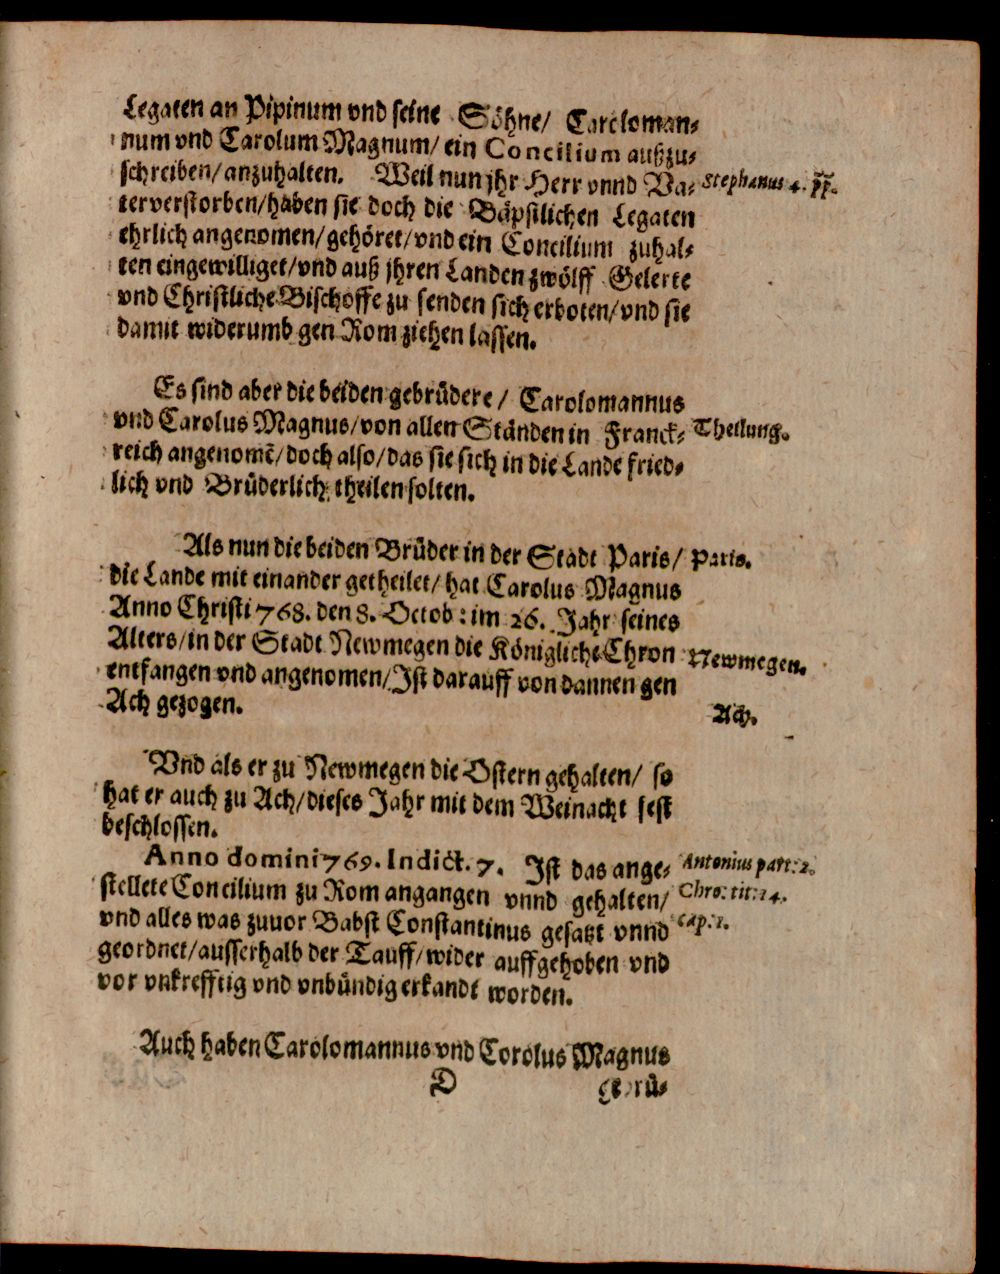 Legaten an Pipinum vnd seine Söhne/ Carcloman⸗
num vnd Carolum Magnum/ ein Concilium außzu⸗
schreiben/ anzuhalten. Weil nun jhr Herr vnnd Va⸗ Stephanus 4. pp.
ter verstorben/ haben sie doch die Bäpstlichen Legaten
ehrlich angenomen/ gehöret/ vnd ein Concilium zuhal⸗
ten eingewilliget/ vnd auß jhren Landen zwölff Gelerte
vnd Christliche Bischoffe zu senden sich erboten/ vnd sie
damit widerumb gen Rom ziehen lassen.
Es sind aber die beiden gebrüdere/ Carolomannus
vnd Carolus Magnus/ von allen Ständen in Franck⸗ Theilung.
reich angenomē/ doch also/ das sie sich in die Lande fried⸗
lich vnd Brüderlich theilen solten.
Als nun die beiden Brüder in der Stadt Paris/ Paris.
die Lande mit einander getheilet/ hat Carolus Magnus
Anno Christi 768. den 8. Octob: im 26. Jahr seines
Alters/ in der Stadt Newmegen die Königliche Chron Newmegen.
entfangen vnd angenomen/ Ist darauff von dannen gen
Ach gezogen. Ach.
Vnd als er zu Newmegen die Ostern gehalten/ so
hat er auch zu Ach/ dieses Jahr mit dem Weinacht fest
beschlossen.
Anno domini 769. Indict. 7. Ist das ange⸗ Antonius part: 2.
stellete Concilium zu Rom angangen vnnd gehalten/ Chro: tit: 14.
vnd alles was zuuor Babst Constantinus gesatzt vnnd cap: 1.
geordnet/ ausserhalb der Tauff/ wider auffgehoben vnd
vor vnkrefftig vnd vnbündig erkandt worden.
Auch haben Carolomannus vnd Corolus Magnus
D gebrü⸗